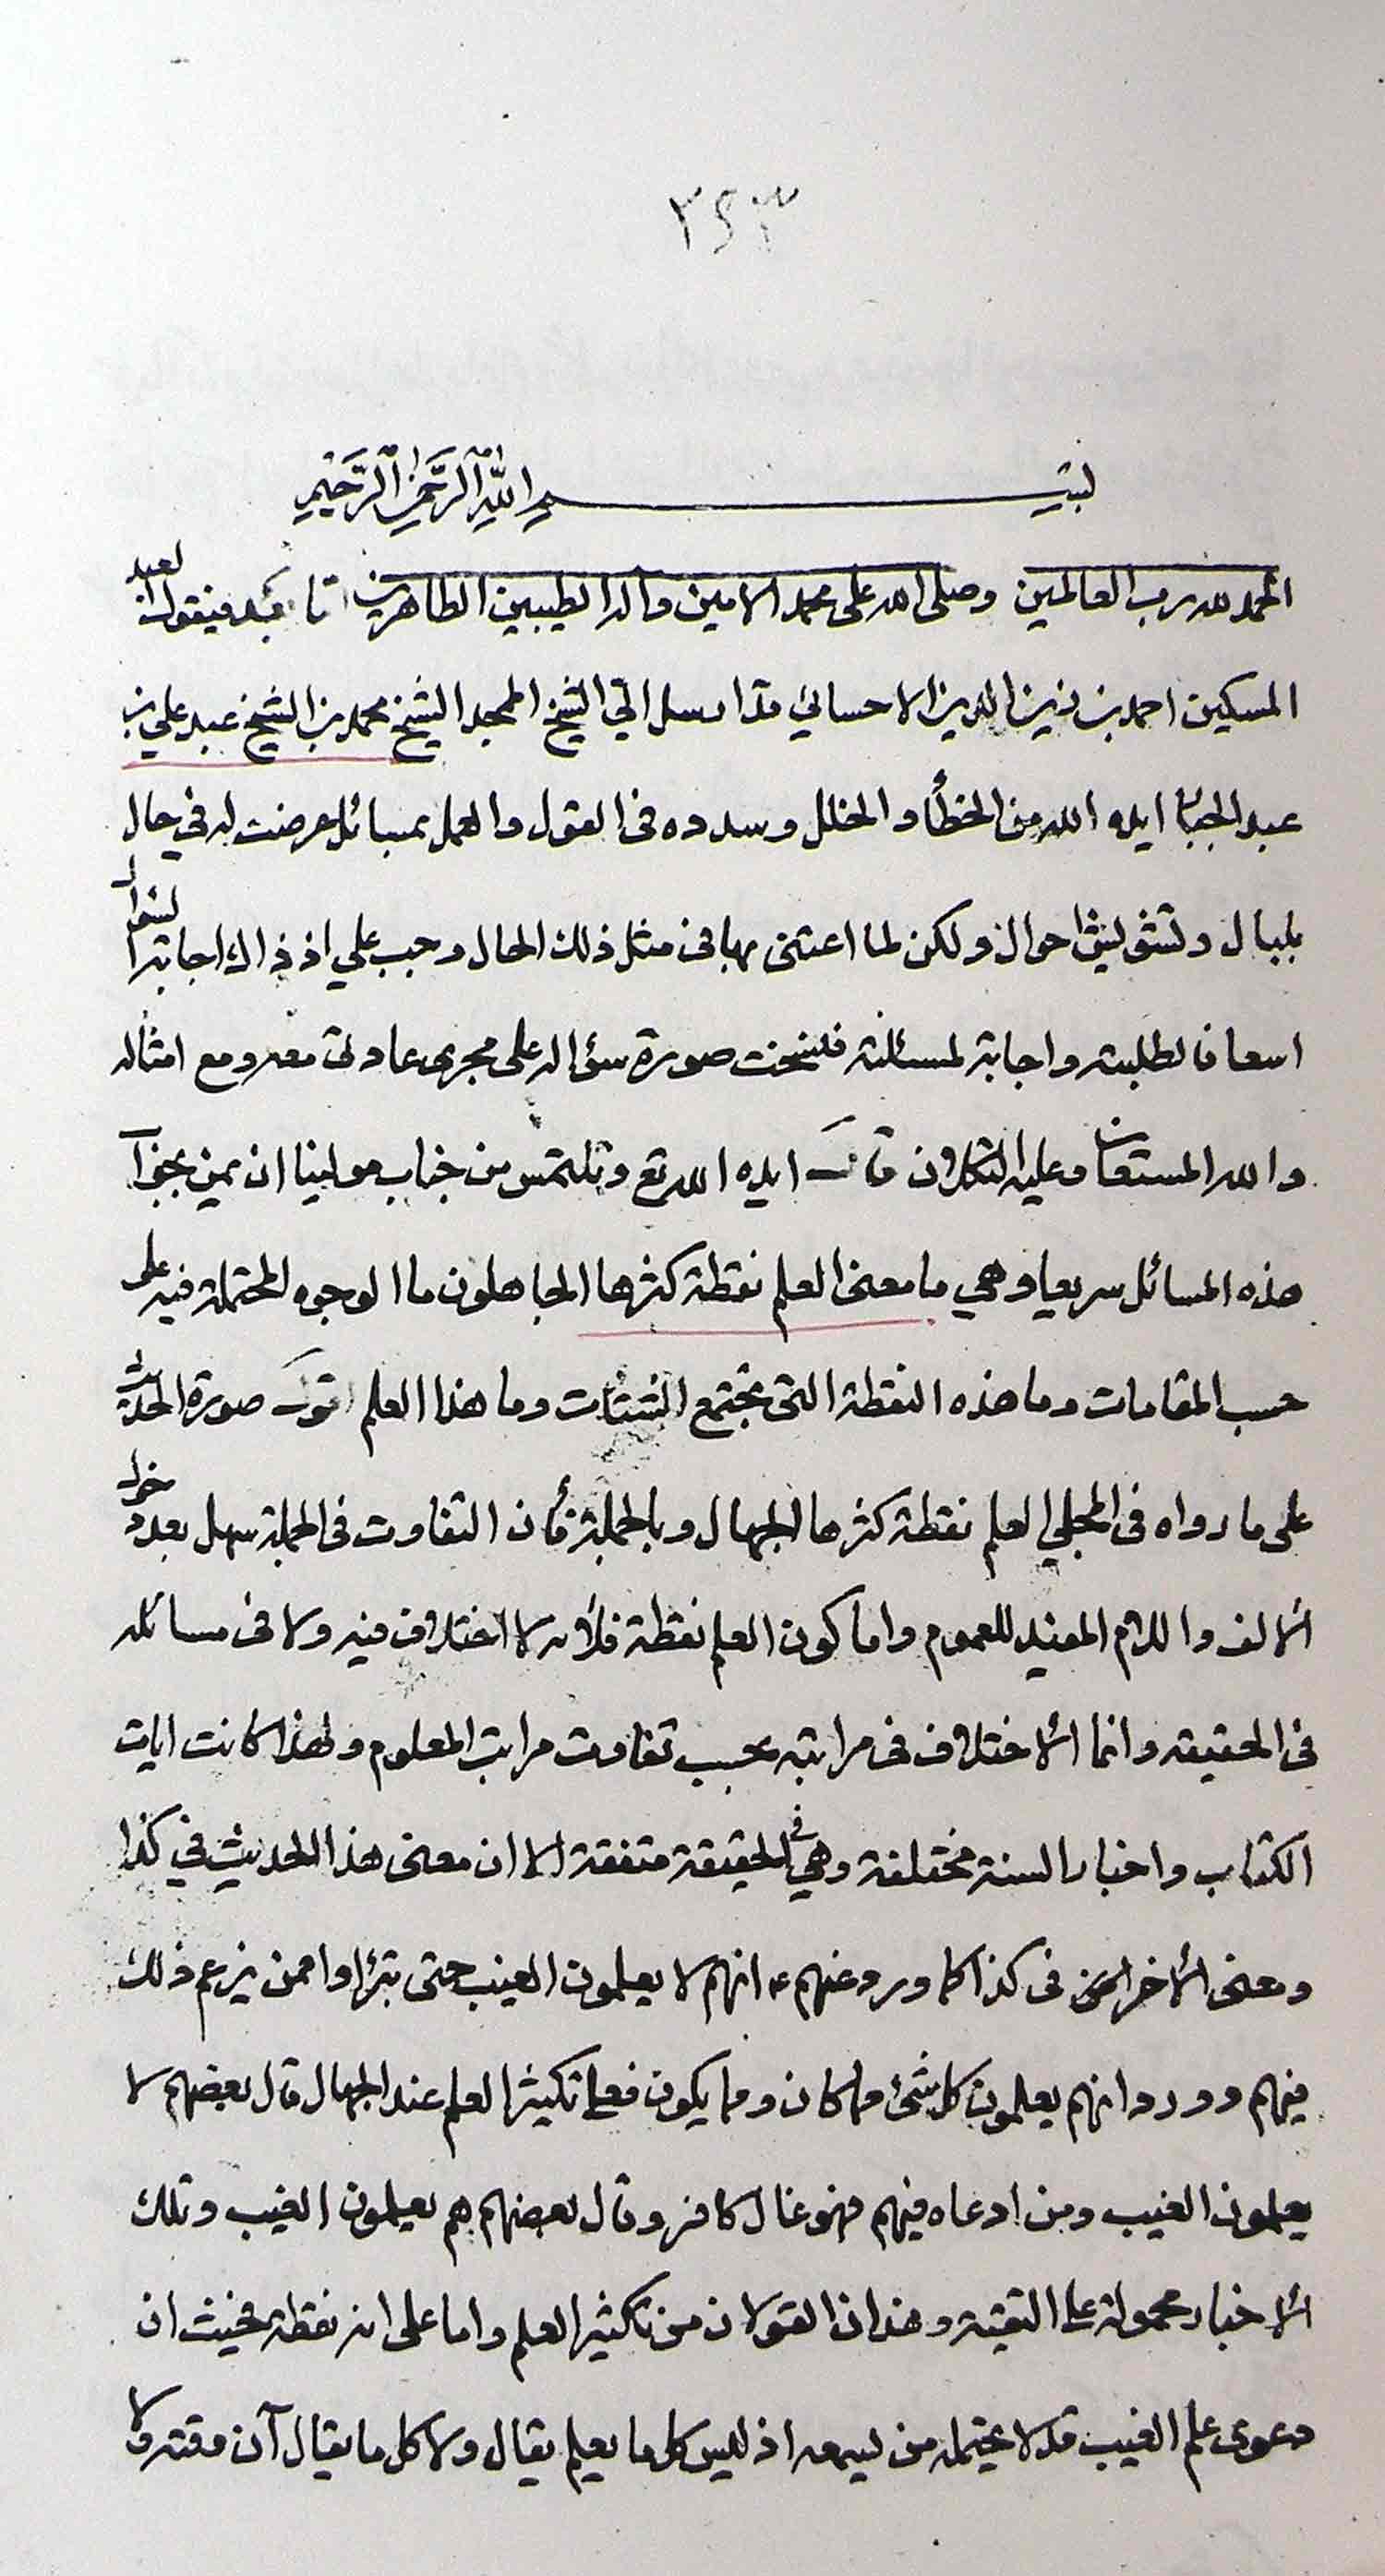 ٢٤٣
بسم الله الرحمن الرحيم
الحمد لله رب العالمين وصلى الله على محمد الامين وآله الطيبين الطاهرين اما بعد فيقول العبد
المسكين احمد بن زين الدين الاحسائي قد ارسل اليّ الشيخ الممجد الشيخ محمد بن الشيخ عبد علي بن
عبد الجبار ايده الله من الخطأ والخلل وسدده في القول والعمل بمسائل عرضت له في حال
بلبال وتشويش احوال ولكن لما اعتنى بها في مثل ذلك الحال وجب علي اذ ذاك اجابته لسؤاله
اسعافا لطلبته واجابة لمسئلته فنسخت صورة سؤاله على مجرى عادتي معه ومع امثاله
والله المستعان وعليه التكلان قال ايده الله تع ونلتمس من جناب مولينا ان يمن بجواب
هذه المسائل سريعا وهي ما معنى العلم نقطة كثرها الجاهلون ما الوجوه المحتملة فيه على
حسب المقامات وما هذه النقطة التي تجتمع الشتات وما هذا العلم اقول صورة الحديث
على ما رواه في المجلي العلم نقطة كثرها الجهال وبالجملة فأن التفاوت في الجملة سهل بعد دخول
الألف واللام المفيد للعموم واما كون العلم نقطة فلأنه لا اختلاف فيه ولا في مسائله
في الحقيقه وانما الأختلاف في مراتبه بحسب تفاوت مراتب المعلوم ولهذا كانت ايات
الكتاب واخبار السنة مختلفة وهي في الحقيقة متفقة الا ان معنى هذا الحديث في كذا
ومعنى الأخر في كذا كما ورد عنهم ع انهم لا يعلمون الغيب حتى تبرؤا ممن يزعم ذلك
فيهم وورد انهم يعلمون كل شئ مما كان ومما يكون فعلى تكثير العلم عند الجهال قال بعضهم لا
يعلمون الغيب ومن ادعاه فيهم فهو غال كافر وقال بعضهم هم يعلمون الغيب وتلك
الأخبار محمولة على التقية وهذان القولان من تكثير العلم واما على انه نقطة فحيث ان
دعوى علم الغيب قد لا يحتمله من يسمعه اذ ليس كل ما يعلم يقال ولا كل ما يقال آن وقته ولا